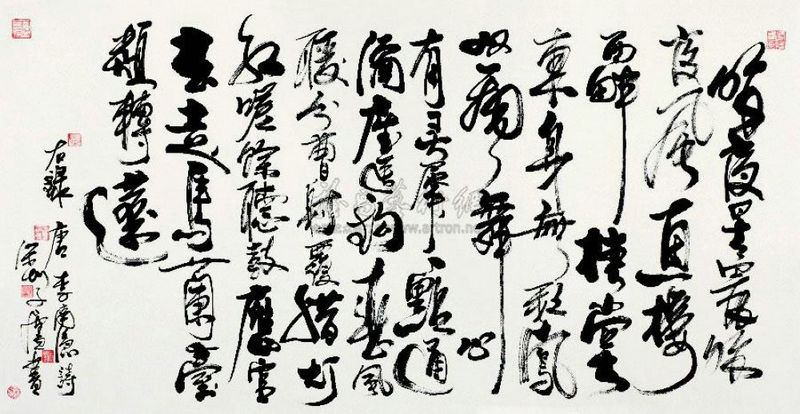 昨夜星辰昨
夜風樓
西畔桂堂
東身無彩鳳
心
有靈犀一點通
座送鉤春
暖分曹射覆腊灯
紅嗟餘聽鼓應官
去走馬蘭臺
類轉蓬
右錄 唐 李商隱詩
深圳子書